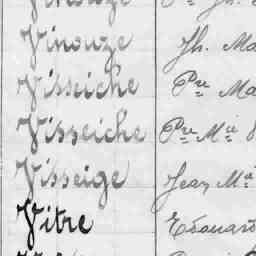 Vinouze Jh. Ma
Visseiche Pre Ma
Visseiche Pre Mie
Visseige Jean Mie
Vitre Edouard